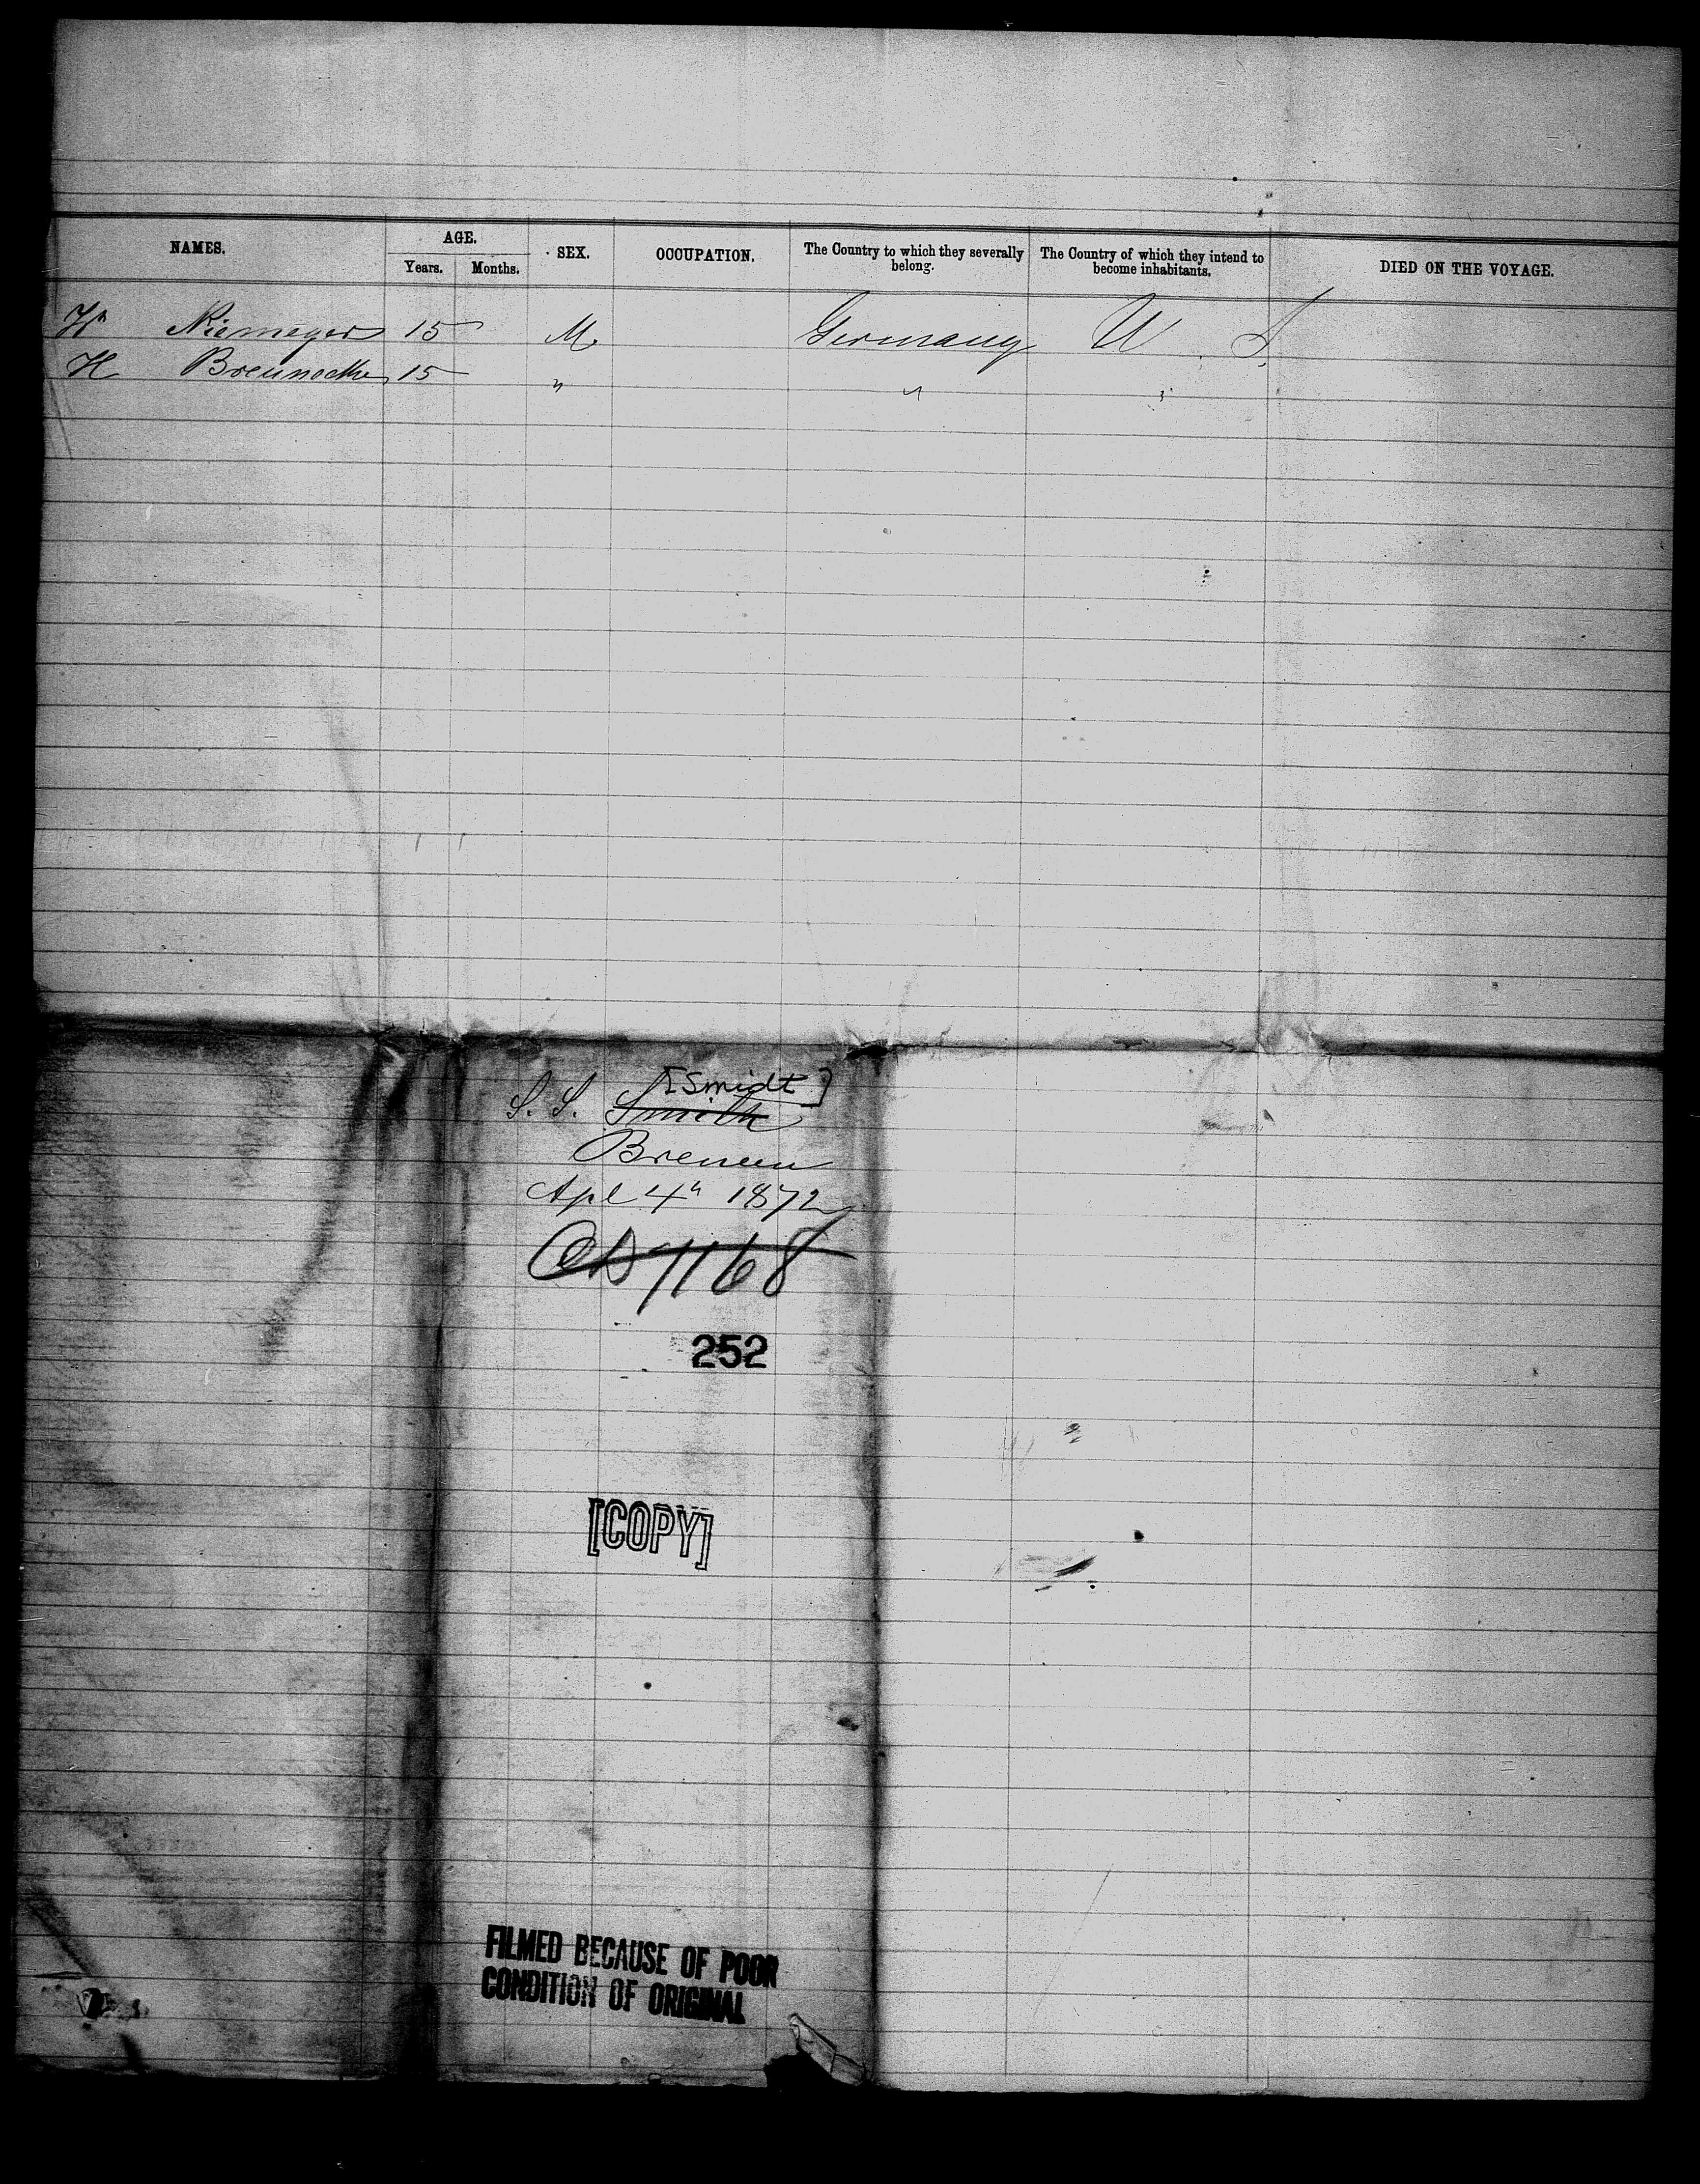 NAMES. AGE. SEX. OCCUPATION. The Country to which they severally belong. The Country of which they intend to become inhabitants. DIED ON THE VOYAGE.
Years. Months.
Hr Niemeyer 15 M. Germany U. S.
H Brennecke 15 " " "
[Smidt]
S. S. Smith
Bremen
Apl 4h 1872
1168
252
[COPY]
FILMED BECAUSE OF POOR
CONDITION OF ORIGINAL